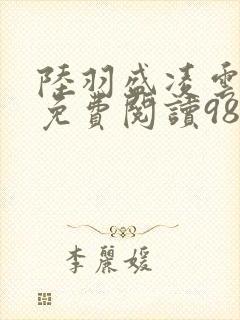 陸羽盛凌雲
免費閱讀98
李麗媛